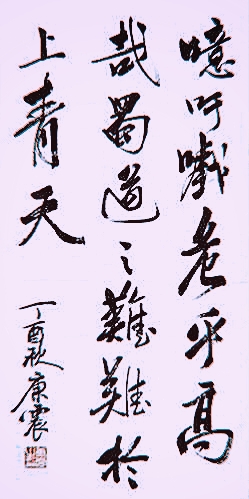 噫吁戲危乎高
哉蜀道之難難於
上青天
丁酉秋康震